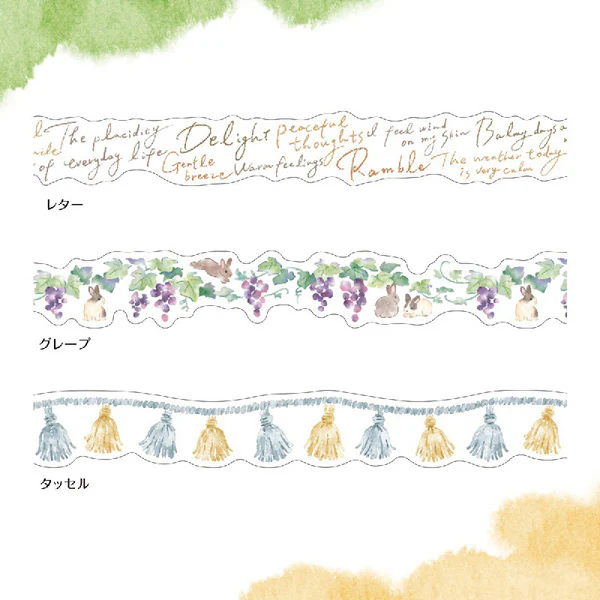 The placidity
of everyday life
Delight
Gentle
breeze
Warm feelings
Peaceful
thoughts
I feel wind
on my skin
Ramble
Balmy days
The weather today
is very calm
レター
グレープ
タッセル